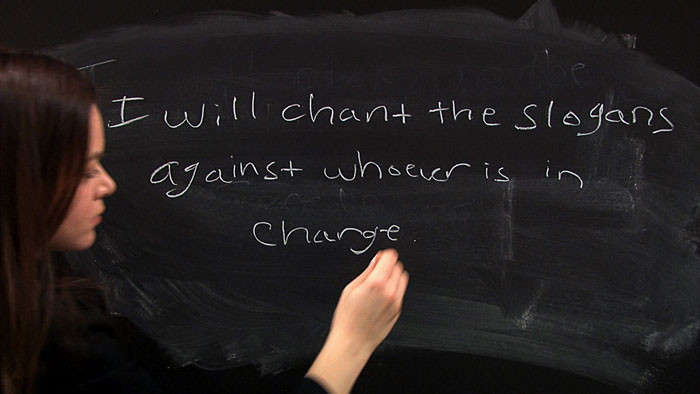 I will chant the slogans
against whoever is in
charge.